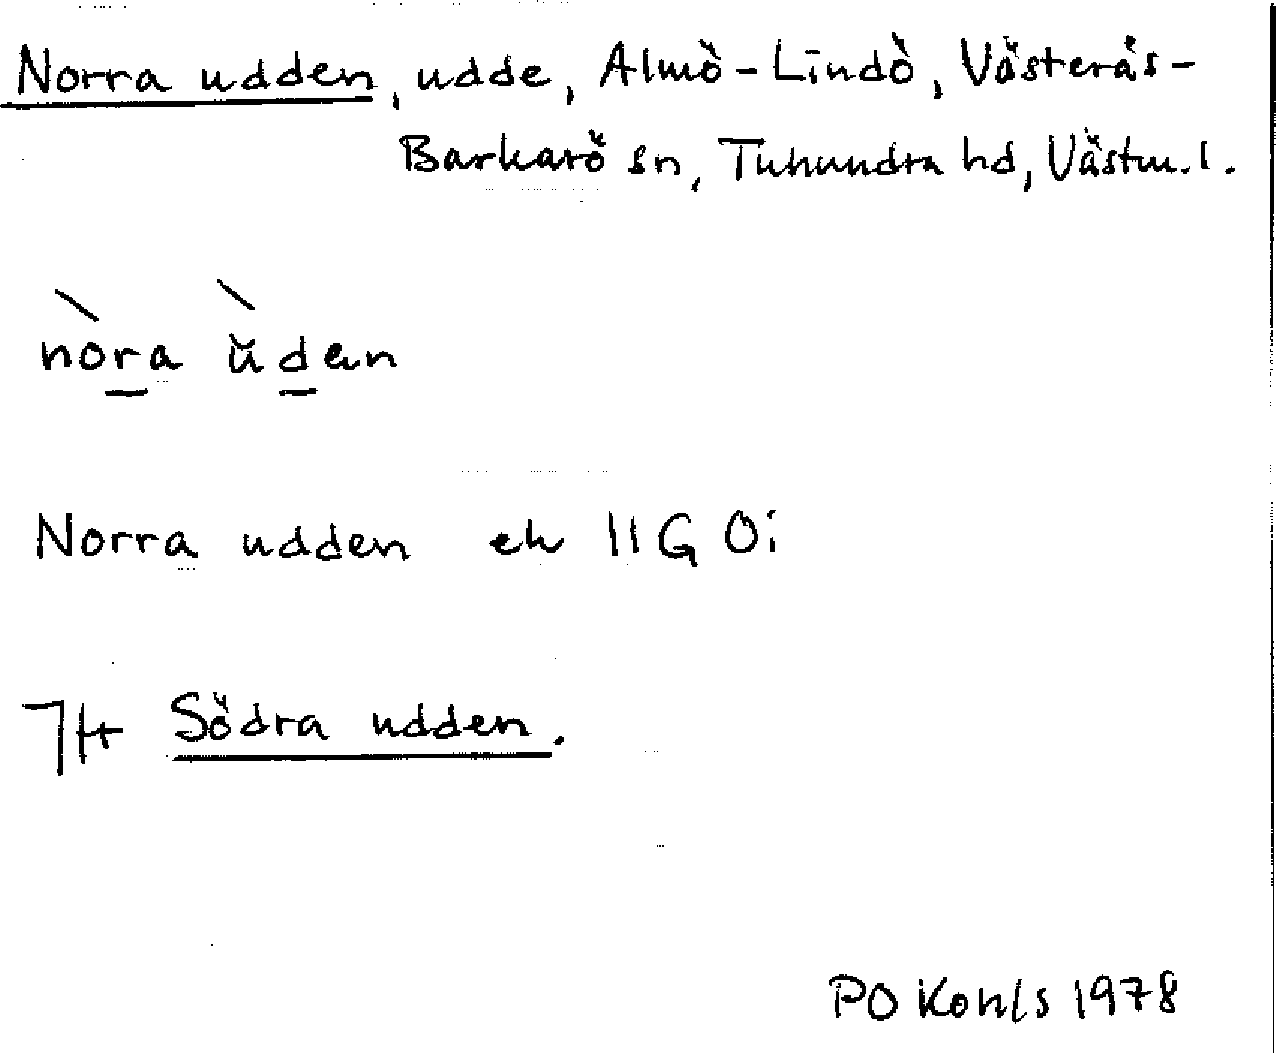 Norra udden, udde, Almö-Lindö, Västerås-
Barkarö sn, Tuhundra hd, Västm. l.
nòra ŭ̀dän
Norra udden ek 11G 0i
Jfr Södra udden.
PO Kohls 1978